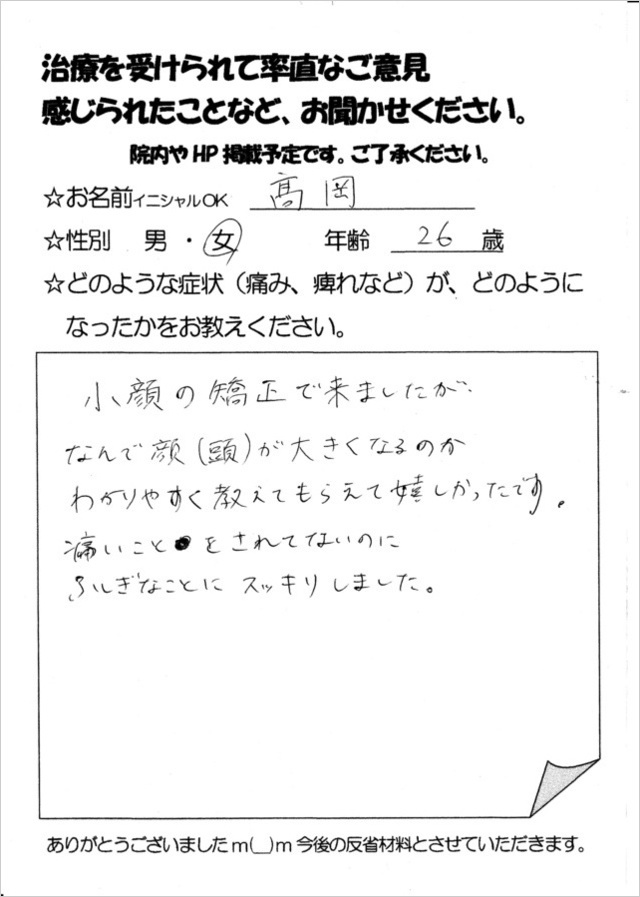 治療を受けられて率直なご意見
感じられたことなど、お聞かせください。
院内やHP掲載予定です。ご了承ください。
☆お名前イニシャルOK 髙岡
☆性別 男・女 年齢 26 歳
☆どのような症状（痛み、痺れなど）が、どのように
なったかをお教えください。
小顔の矯正で来ましたが、
なんで顔(頭)が大きくなるのか
わかりやすく教えてもらえて嬉しかったです。
痛いことをされてないのに
ふしぎなことに スッキリしました。
ありがとうございましたm(__)m今後の反省材料とさせていただきます。